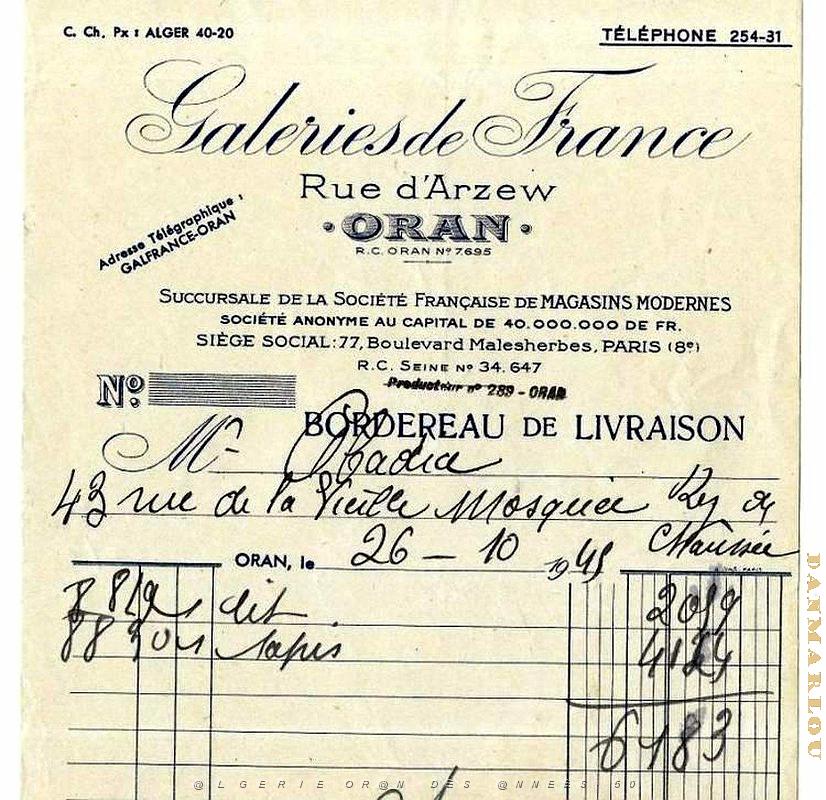 C. Ch. Px : ALGER 40-20
TÉLÉPHONE 254-31
Galeries de France
Rue d'Arzew
ORAN
R.C. ORAN Nº 7.695
Adresse Télégraphique :
GALFRANCE-ORAN
SUCCURSALE DE LA SOCIÉTÉ FRANÇAISE DE MAGASINS MODERNES
SOCIÉTÉ ANONYME AU CAPITAL DE 40.000.000 DE FR.
SIÈGE SOCIAL: 77, Boulevard Malesherbes, PARIS (8e)
R.C. SEINE Nº 34.647
Producteur nº 289 - ORAN
Nº
BORDEREAU DE LIVRAISON
Mr Obadia
43 rue de la Vieille Mosquée Rez de
Chaussée
ORAN, le 26 - 10 1945
dit
tapis 4124
6183
@LGERIE OR@N DES @NNEES 50
DANMARLOU